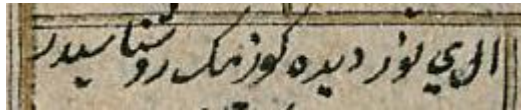 ال ي نور ديده كوزمك روشناسيدر